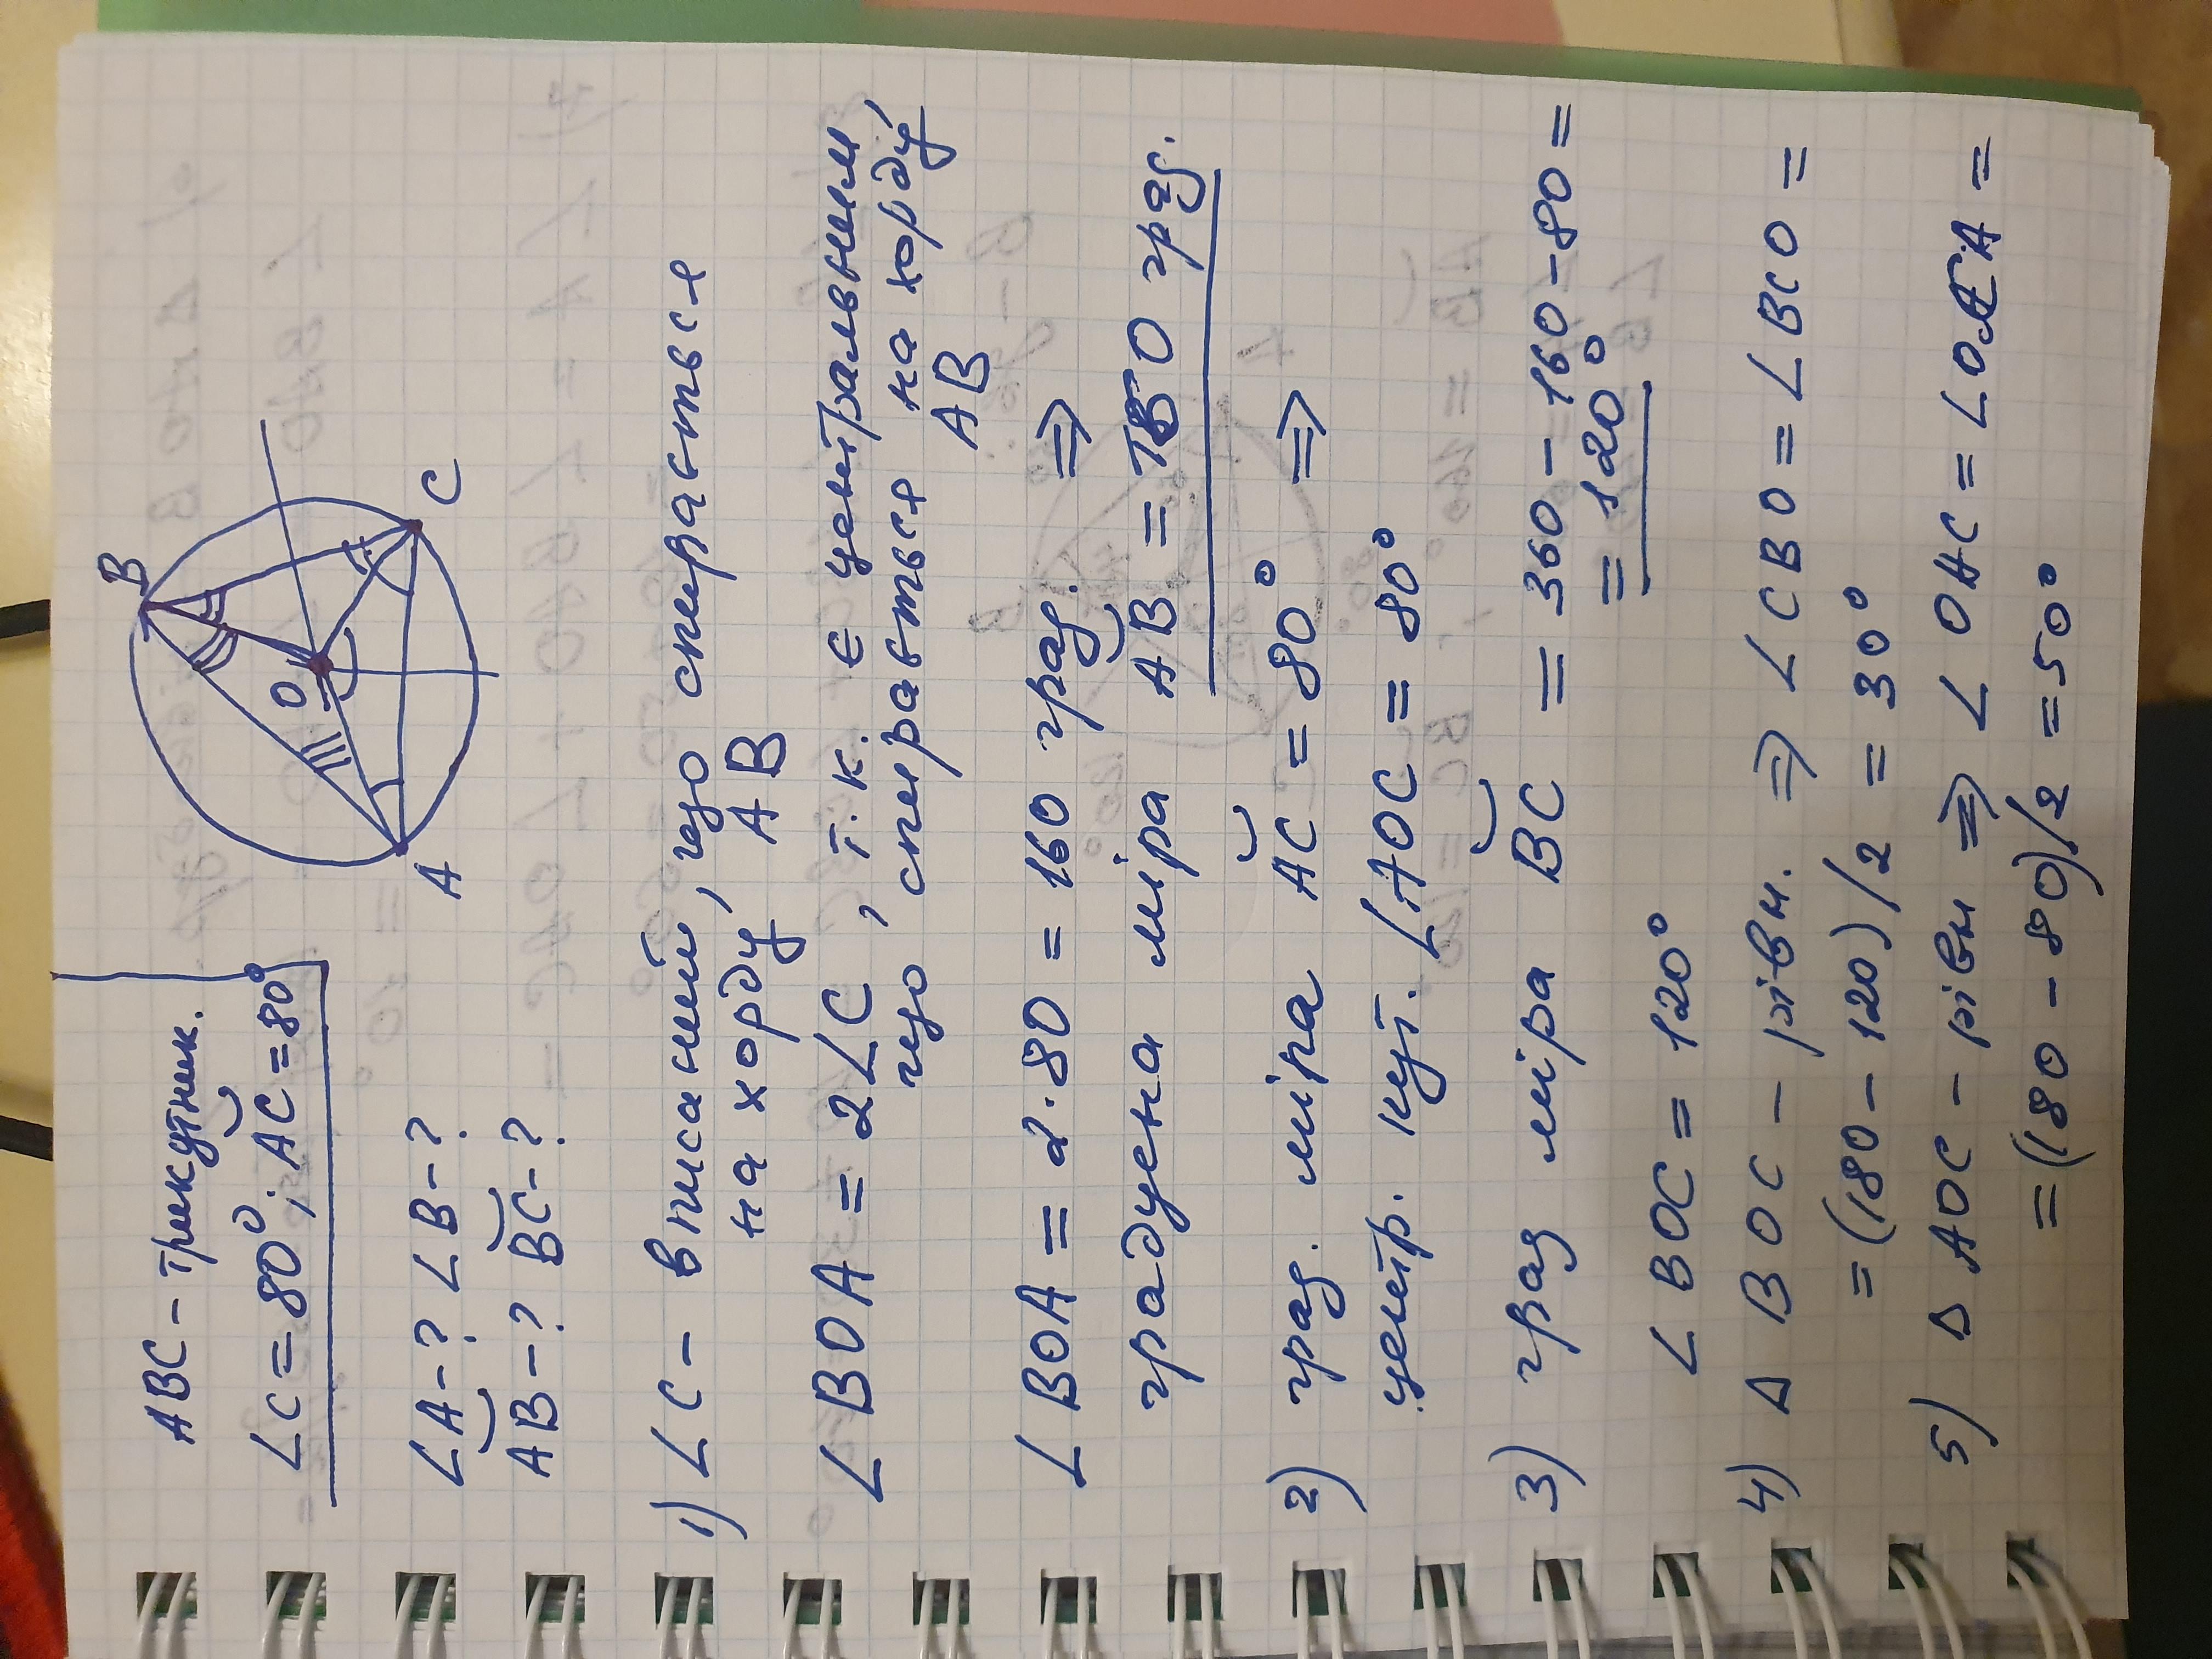 ABC - трикутник.
∠C = 80°; AC = 80°
∠A - ? ∠B - ?
AB - ? BC - ?
B
O
A
C
1) ∠C - вписаний, що спирається
на хорду AB
∠BOA = 2∠C, т.к. є центральним,
що спирається на хорду
AB
∠BOA = 2·80 = 160 град. ⇒
градусна міра AB = 160 град.
2) град. міра AC = 80° ⇒
центр. кут. ∠AOC = 80°
3) град міра BC = 360 - 160 - 80 =
= 120°
∠BOC = 120°
4) Δ BOC - рівн. ⇒ ∠CBO = ∠BCO =
= (180 - 120)/2 = 30°
5) Δ AOC - рівн ⇒ ∠OAC = ∠OCA =
= (180 - 80)/2 = 50°